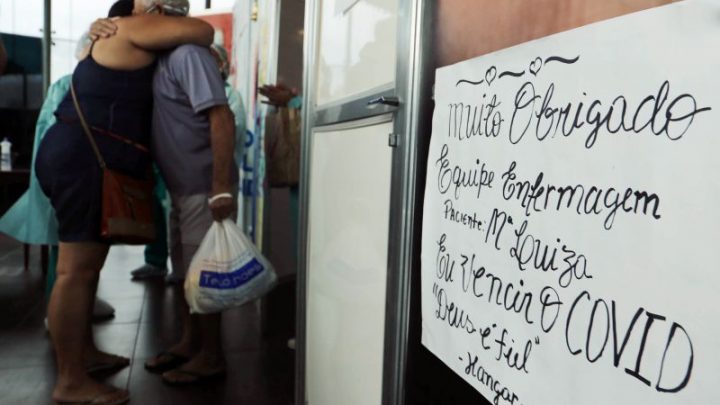 muito Obrigado
Equipe Enfermagem
PACiENTE: Mª Luiza
Eu Vencir O COVID
"Deus é fiel"
- Hangar